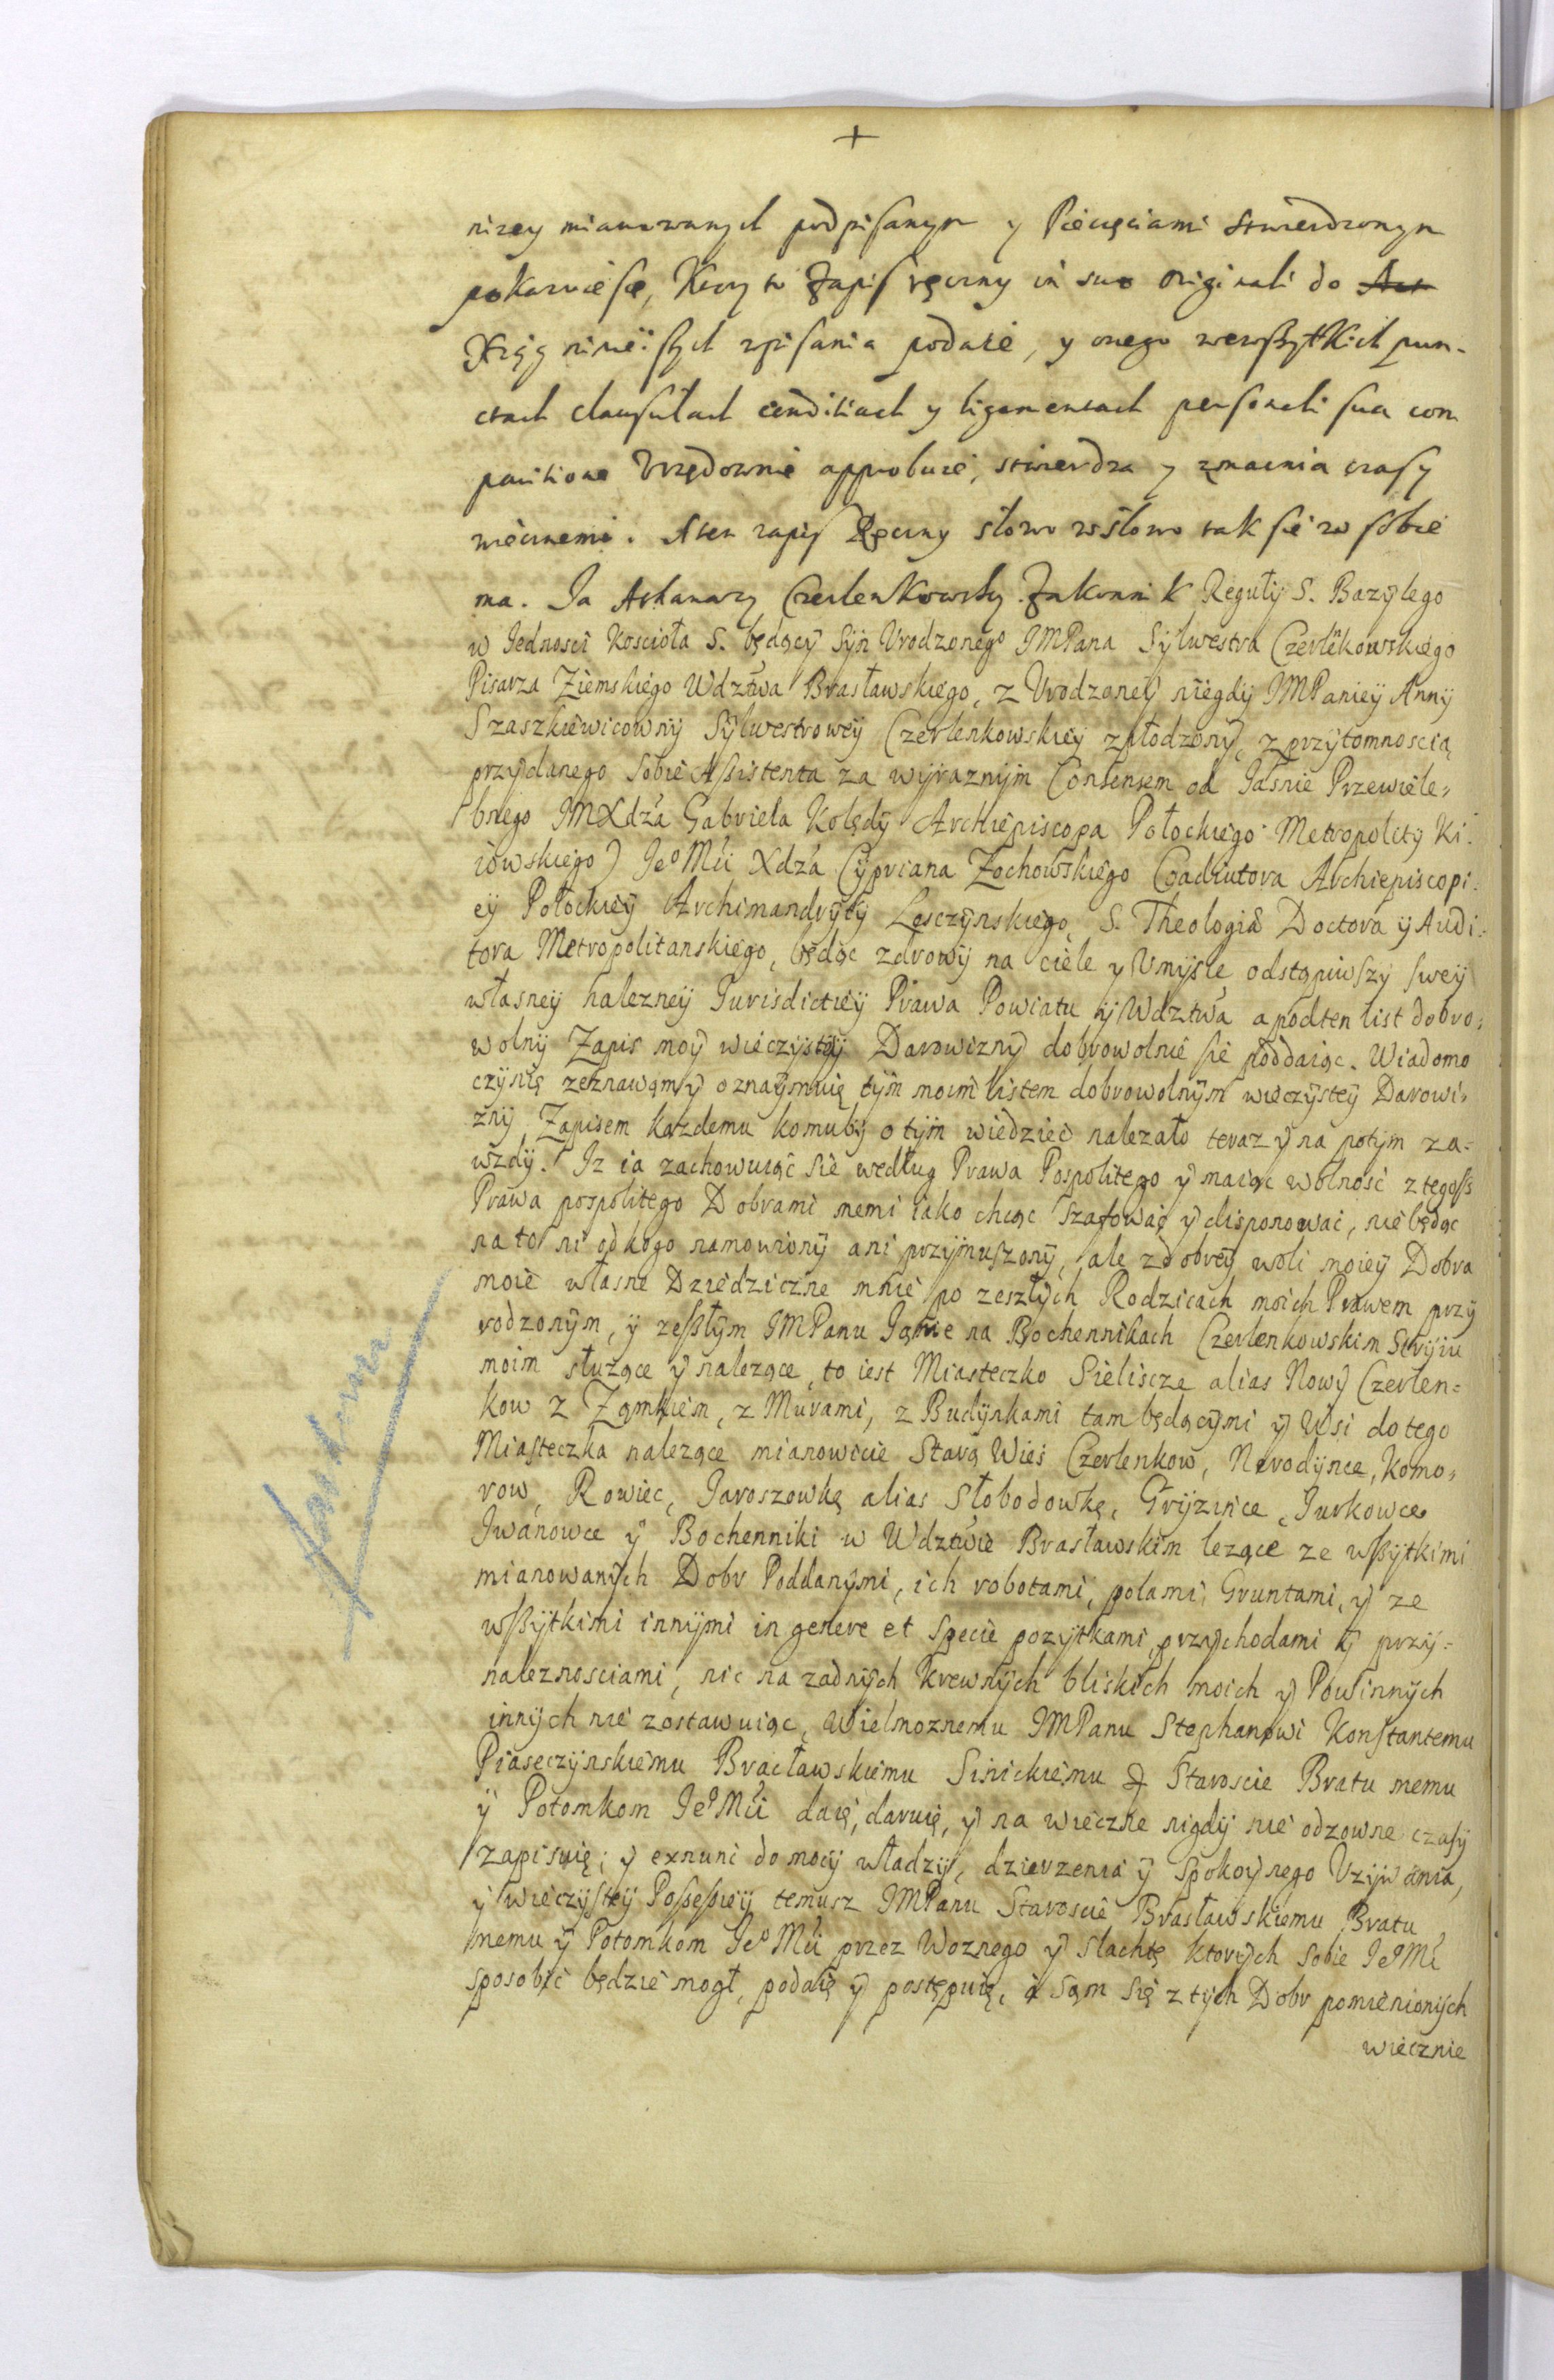 +
nizey mianowanych podpisanym y Pieczęciami stwierdzonym
pokazuie sie, Ktory to Zapis ręczny in suo originali do Act
Xsiąg ninieiszych wpisania podaie, y onego wewszytkich pun-
ctach clausulach conditiach y ligamentach personali sua com
paritione Vrzędownie approbuie, stwierdza y zmacnia czasy
wiecznemi. A ten zapis Ręczny słowo wsłowo tak sie w sobie
ma. Ja Athanazy Czerlenkowsky Zakonnik Reguły S. Bazylego
w Jednosci Koscioła S. będący Syn Vrodzonego JMPana Sylwestra Czerlēkowskiego
Pisarza Ziemskiego Wdztwa Brasławskiego, z Vrodzoney niegdy JMPaniey Anny
Szaszkiewicowny Sylwestrowey Czerlenkowskiey zpłodzony, z przytomnoscią
przydanego Sobie Assistenta za wyraznym Consensem od Jasnie Przewiele-
bnego JMXdza Gabriela Kolędy Archiepiscopa Połockiego Metropolity Ki-
iowskiego) JeoMci Xdza Cypriana Zochowskiego Coadiutora Archiepiscopi-
ey Połockiey Archimandryty Lesczynskiego, S. Theologiæ Doctora y Audi-
tora Metropolitanskiego, będąc zdrowy na ciele y Vmysle, odstąpiwszy swey
własney należney Jurisdictiey Prawa Powiatu y Wdztwa a podten list dobro-
wolny Zapis moy wieczystey Darowizny dobrowolnie sie poddaiąc. Wiadomo
czynię zeznawam y oznaymuię tym moim listem dobrowolnym wieczystey Darowi-
zny Zapisem kazdemu komuby o tym wiedziec nalezało teraz y na potym za-
wzdy. Iz ia zachowuiąc sie według Prawa Pospolitego y maiąc wolnosc z tegoss
Prawa pospolitego Dobrami memi iako chcąc szafowac y disponowac, nie będąc
na to ni od kogo namowiony ani przymuszony, ale zdobrey woli moiey Dobra
moie własne Dziedziczne mnie po zeszłych Rodzicach moich Prawem przy
rodzonym, y zeszłym JMPanu Janie na Bochennikach Czerlenkowskim Stryiu
moim słuzące y nalezące, to iest Miasteczko Sieliscze alias Nowy Czerlen-
kow z Zamkiem, z Murami, z Budynkami tam będącymi y Wsi do tego
Miasteczka nalezące mianowicie Stara Wies Czerlenkow, Norodynce, Komo-
row, Rowiec, Jaroszowkę alias Słobodowkę, Gryzince, Jurkowce
Iwanowce y Bochenniki w Wdztwie Brasławskim lezące ze wszytkimi
mianowanych Dobr Poddanymi, ich robotami, polami, Gruntami, y ze
wszytkimi innymi in genere et specie pozytkami, przychodami y przy-
naleznosciami, nic na zadnych krewnych bliskich moich y Powinnych
innych nie zostawuiąc, Wielmoznemu JMPanu Stephanowi Konstantemu
Piaseczynskiemu Bracławskiemu Sinickiemu & Staroscie Bratu memu
y Potomkom JeoMci daię, daruię, y na wieczne nigdy nie odzowne czasy
zapisuię; y exnunc do mocy władzy, dzierzenia y spokoynego Vzywania,
y wieczystey Possessiey temusz JMPanu Staroscie Brasławskiemu Bratu
memu y Potomkom JeoMci przez Woznego y slachtę ktorych sobie JeoMc
sposobic będzie mogł, podaię y postępuię, a sam się z tych Dobr pomienionych
wiecznie